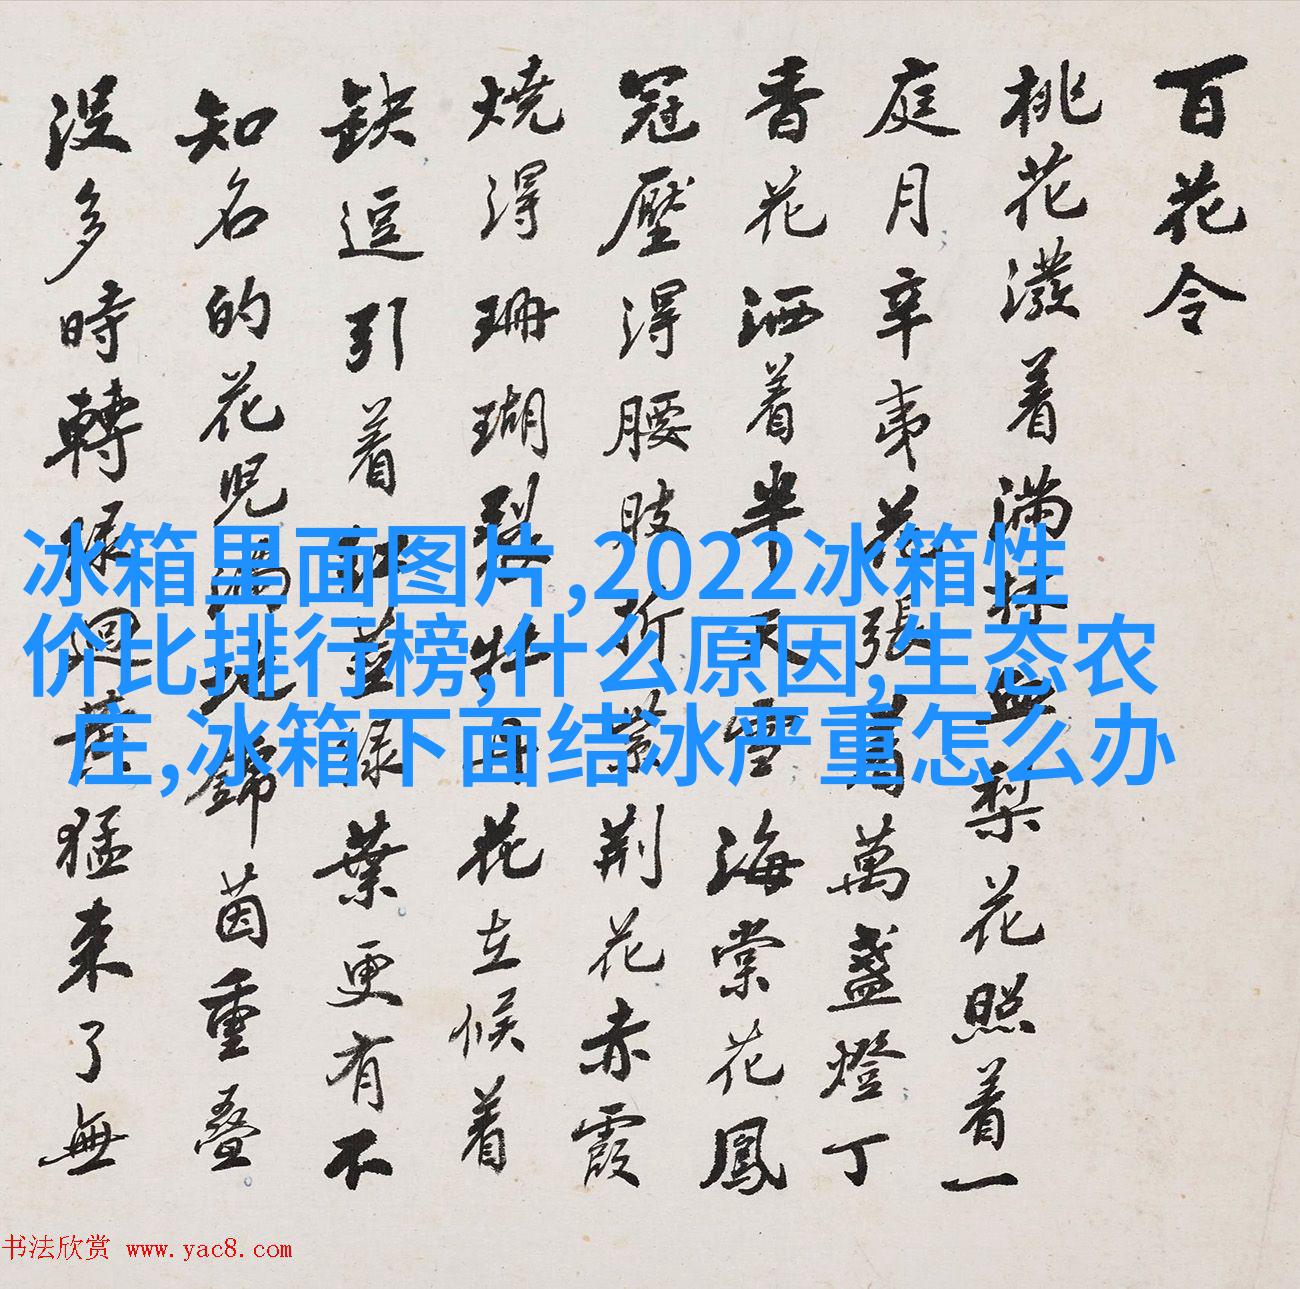 百花令
桃花潑着滿林血梨花照着一
庭月辛夷花張着萬盞燈丁
香花洒着半天雪海棠花鳳
冠壓得腰肢折紫荊花赤霞
燒得珊瑚裂牡丹花立候着
缺逗引着紅綠葉更有不
知名的花兒滿地錦茵重疊
沒多時轉綠迴黃猛來了無
冰箱里面图片,2022冰箱性
价比排行榜,什么原因,生态农
庄,冰箱下面结冰严重怎么办
书法欣赏 www.yac8.com